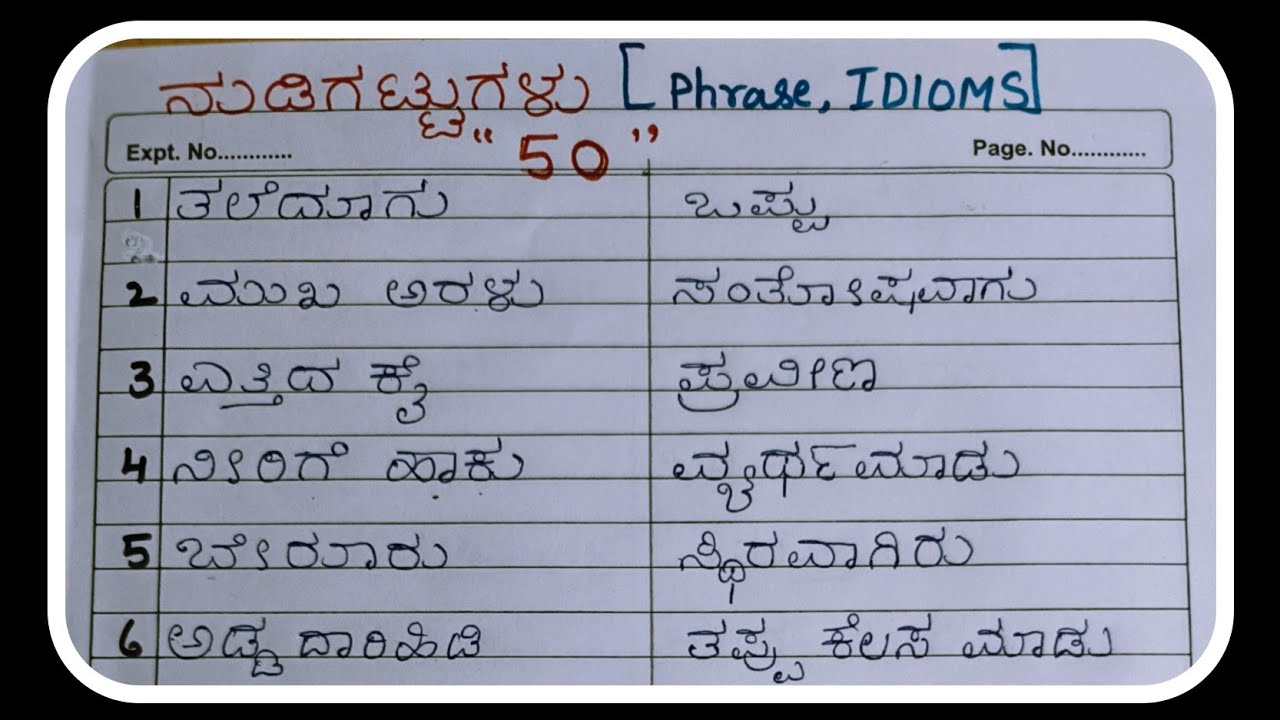 ನುಡಿಗಟ್ಟುಗಳು [Phrase, IDIOMS]
"50"
Expt. No............ Page. No............
1 ತಲೆದೂಗು ಒಪ್ಪು
2 ಮುಖ ಅರಳು ಸಂತೋಷವಾಗು
3 ಎತ್ತಿದ ಕೈ ಪ್ರವೀಣ
4 ನೀರಿಗೆ ಹಾಕು ವ್ಯರ್ಥಮಾಡು
5 ಬೇರೂರು ಸ್ಥಿರವಾಗಿರು
6 ಅಡ್ಡದಾರಿಹಿಡಿ ತಪ್ಪು ಕೆಲಸ ಮಾಡು